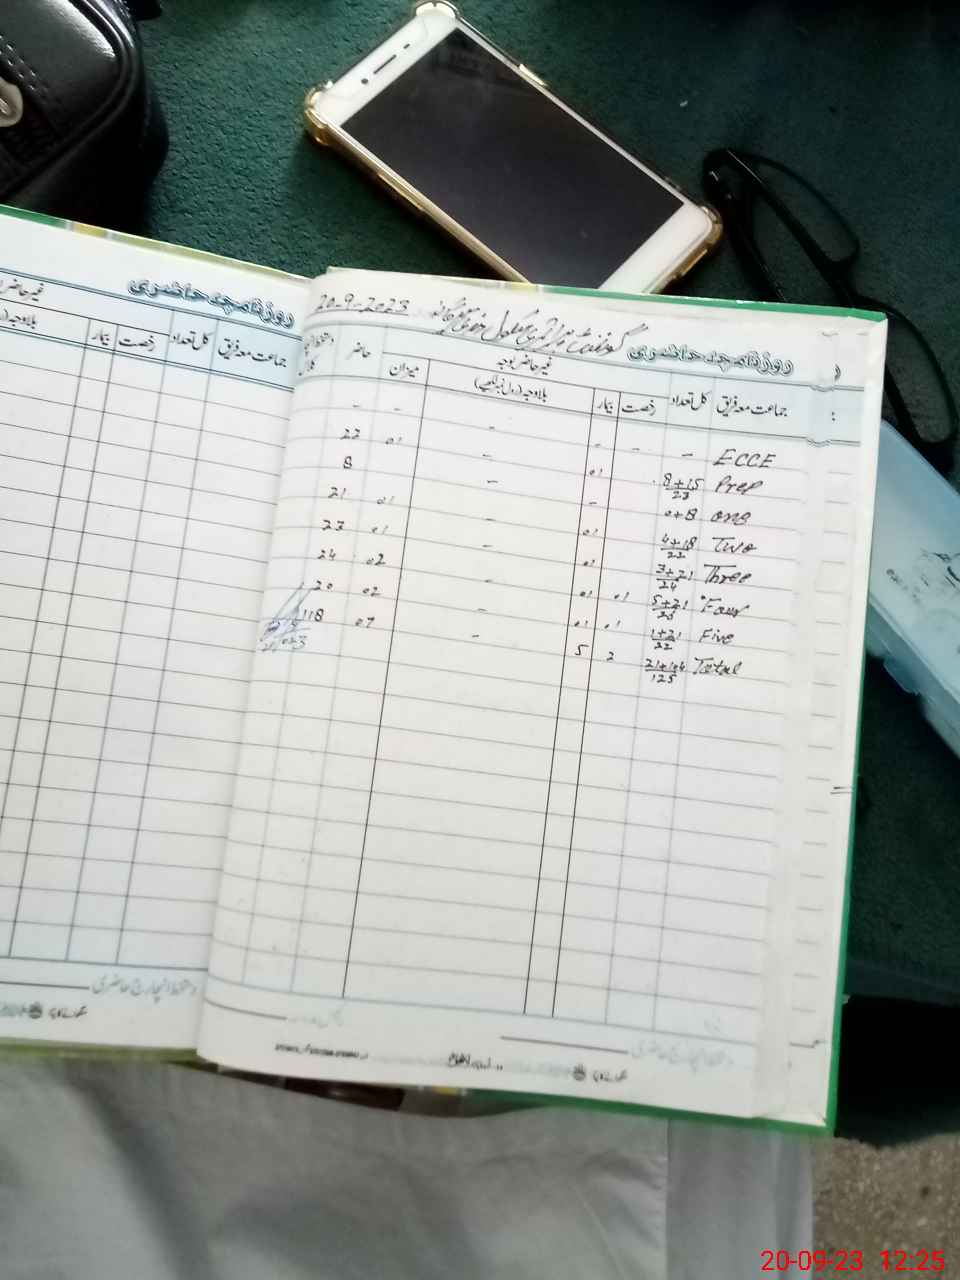 روزنامچہ حاضری
غیر حاضر
بلاوجہ
بیمار رخصت کل تعداد جماعت معہ فریق
20-9-2023
گورنمنٹ پرائمری سکول
روزنامچہ حاضری
جماعت معہ فریق کل تعداد رخصت بیمار غیر حاضر بوجہ بلاوجہ (رول نمبر لکھیے) میزان حاضر
ECCE - - - - - -
Prep 8+15/23 01 - 01 22
one 0+8 - - 8
Two 4+18/22 01 - 01 21
Three 3+21/24 01 - 01 23
Four 5+21/26 01 01 - 02 24
Five 1+21/22 01 01 - 02 20
Total 21+104/125 2 5 - 07 118
دستخط انچارج حاضری
دستخط انچارج حاضری
20-09-23 12:25